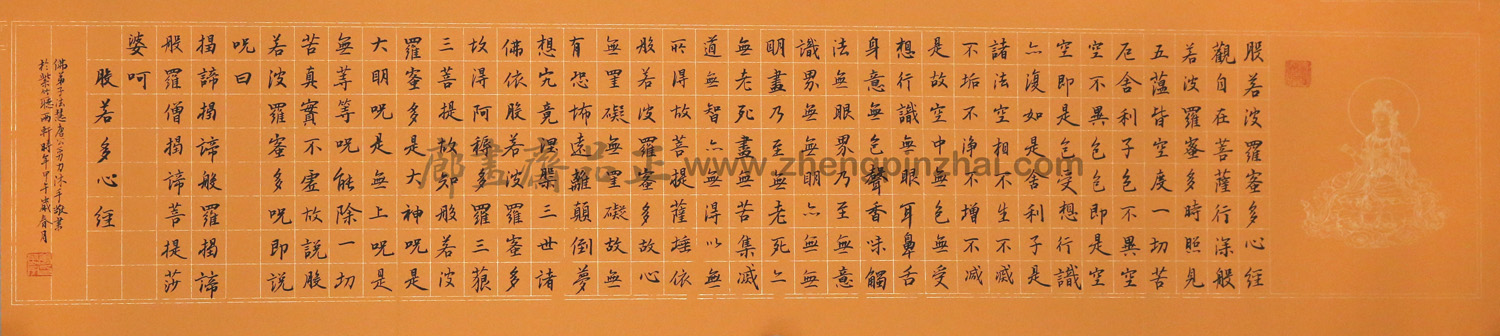 般若波羅蜜多心經
觀自在菩薩行深般
若波羅蜜多時照見
五蘊皆空度一切苦
厄舍利子色不異空
空不異色色即是空
空即是色受想行識
亦復如是舍利子是
諸法空相不生不滅
不垢不淨不增不減
是故空中無色無受
想行識無眼耳鼻舌
身意無色聲香味觸
法無眼界乃至無意
識界無無明亦無無
明盡乃至無老死亦
無老死盡無苦集滅
道無智亦無得以無
所得故菩提薩埵依
般若波羅蜜多故心
無罣礙無罣礙故無
有恐怖遠離顛倒夢
想究竟涅槃三世諸
佛依般若波羅蜜多
故得阿耨多羅三藐
三菩提故知般若波
羅蜜多是大神呪是
大明呪是無上呪是
無等等呪能除一切
苦真實不虛故說般
若波羅蜜多呪即說
呪曰
揭諦揭諦般羅揭諦
般羅僧揭諦菩提莎
婆呵
般若多心經
佛弟子法慧唐公三刃沐手敬書
於紫竹聽雨軒時年甲午歲春月
正品齋畫廊
www.zhengpinzhai.com